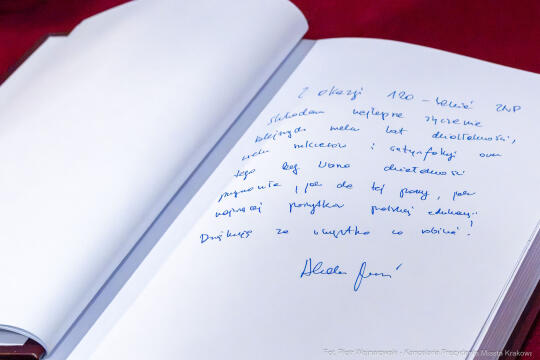 Z okazji 120-lecia ZNP
składam najlepsze życzenia
kolejnych wielu lat działalności,
wielu sukcesów i satysfakcji oraz
tego by Wasza działalność
, jak do tej pory,
najwięcej pożytku polskiej edukacji.
Dziękuję za wszystko co robicie!
Fot. Piotr Wojnarowski - Kancelaria Prezydenta Miasta Krakowa